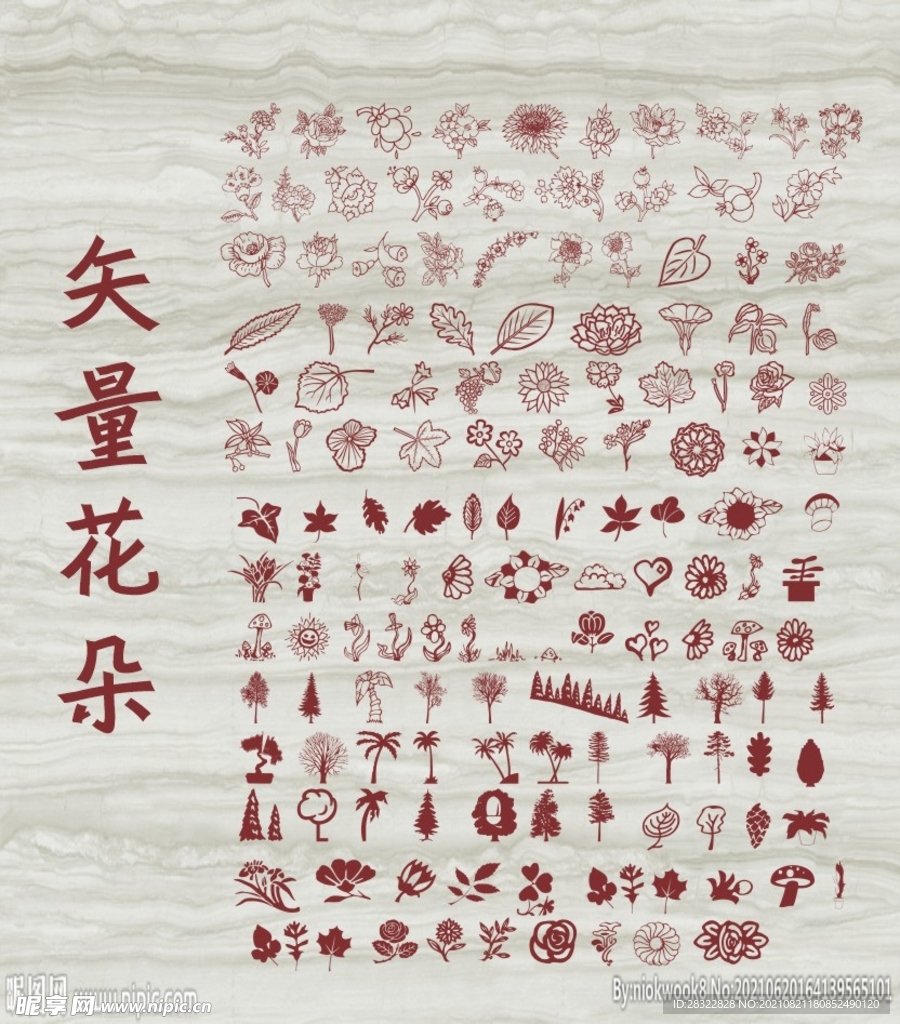 矢量花朵
昵图网 www.nipic.com
昵享网 www.nipic.cn
By:niokwook8 No:20210620164139565101
ID:28322828 NO:20210821180852490120